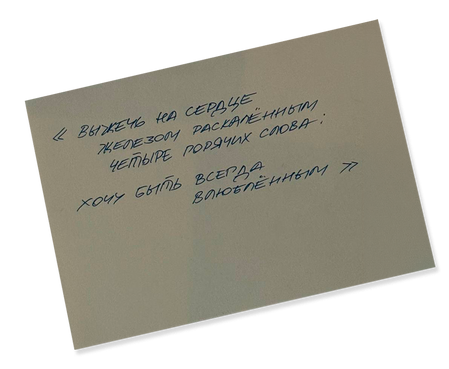 « ВЫЖЕЧЬ НА СЕРДЦЕ
ЖЕЛЕЗОМ РАСКАЛЁННЫМ
ЧЕТЫРЕ ГОРЯЧИХ СЛОВА:
ХОЧУ БЫТЬ ВСЕГДА
ВЛЮБЛЁННЫМ »